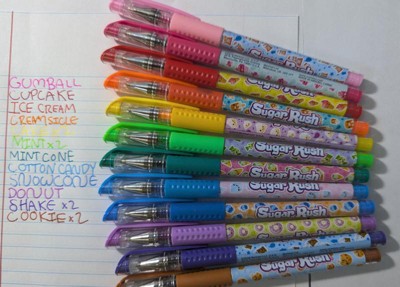 GUMBALL
CUPCAKE
ICE CREAM
CREAMSICLE
MINT x2
MINT CONE
COTTON CANDY
SNOWCONE
DONUT
SHAKE x2
COOKIE x2
Sugar Rush
Sugar Rush
Sugar Rush
Sugar Rush
Sugar Rush
Sugar Rush
Sugar Rush
Sugar Rush
Sugar Rush
Sugar Rush